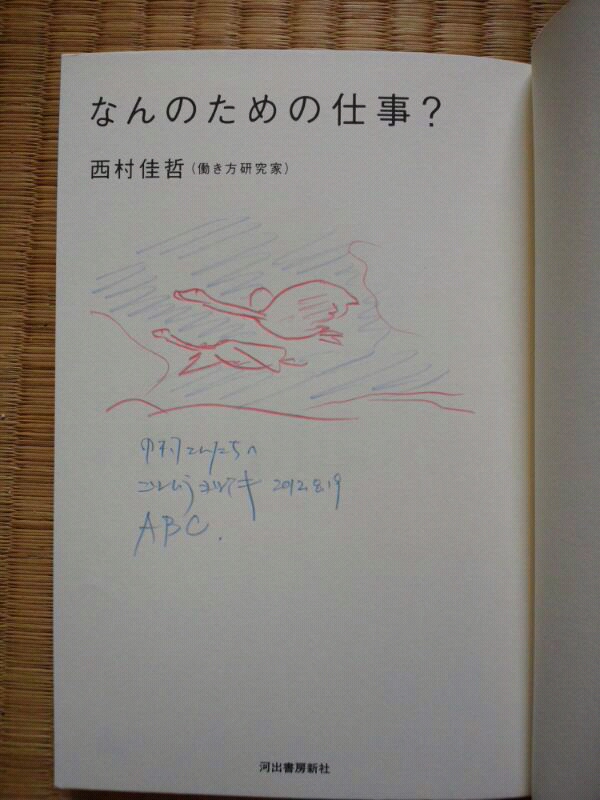 なんのための仕事?
西村佳哲(働き方研究家)
中村さんたちへ
2012.8.19
ABC.
河出書房新社